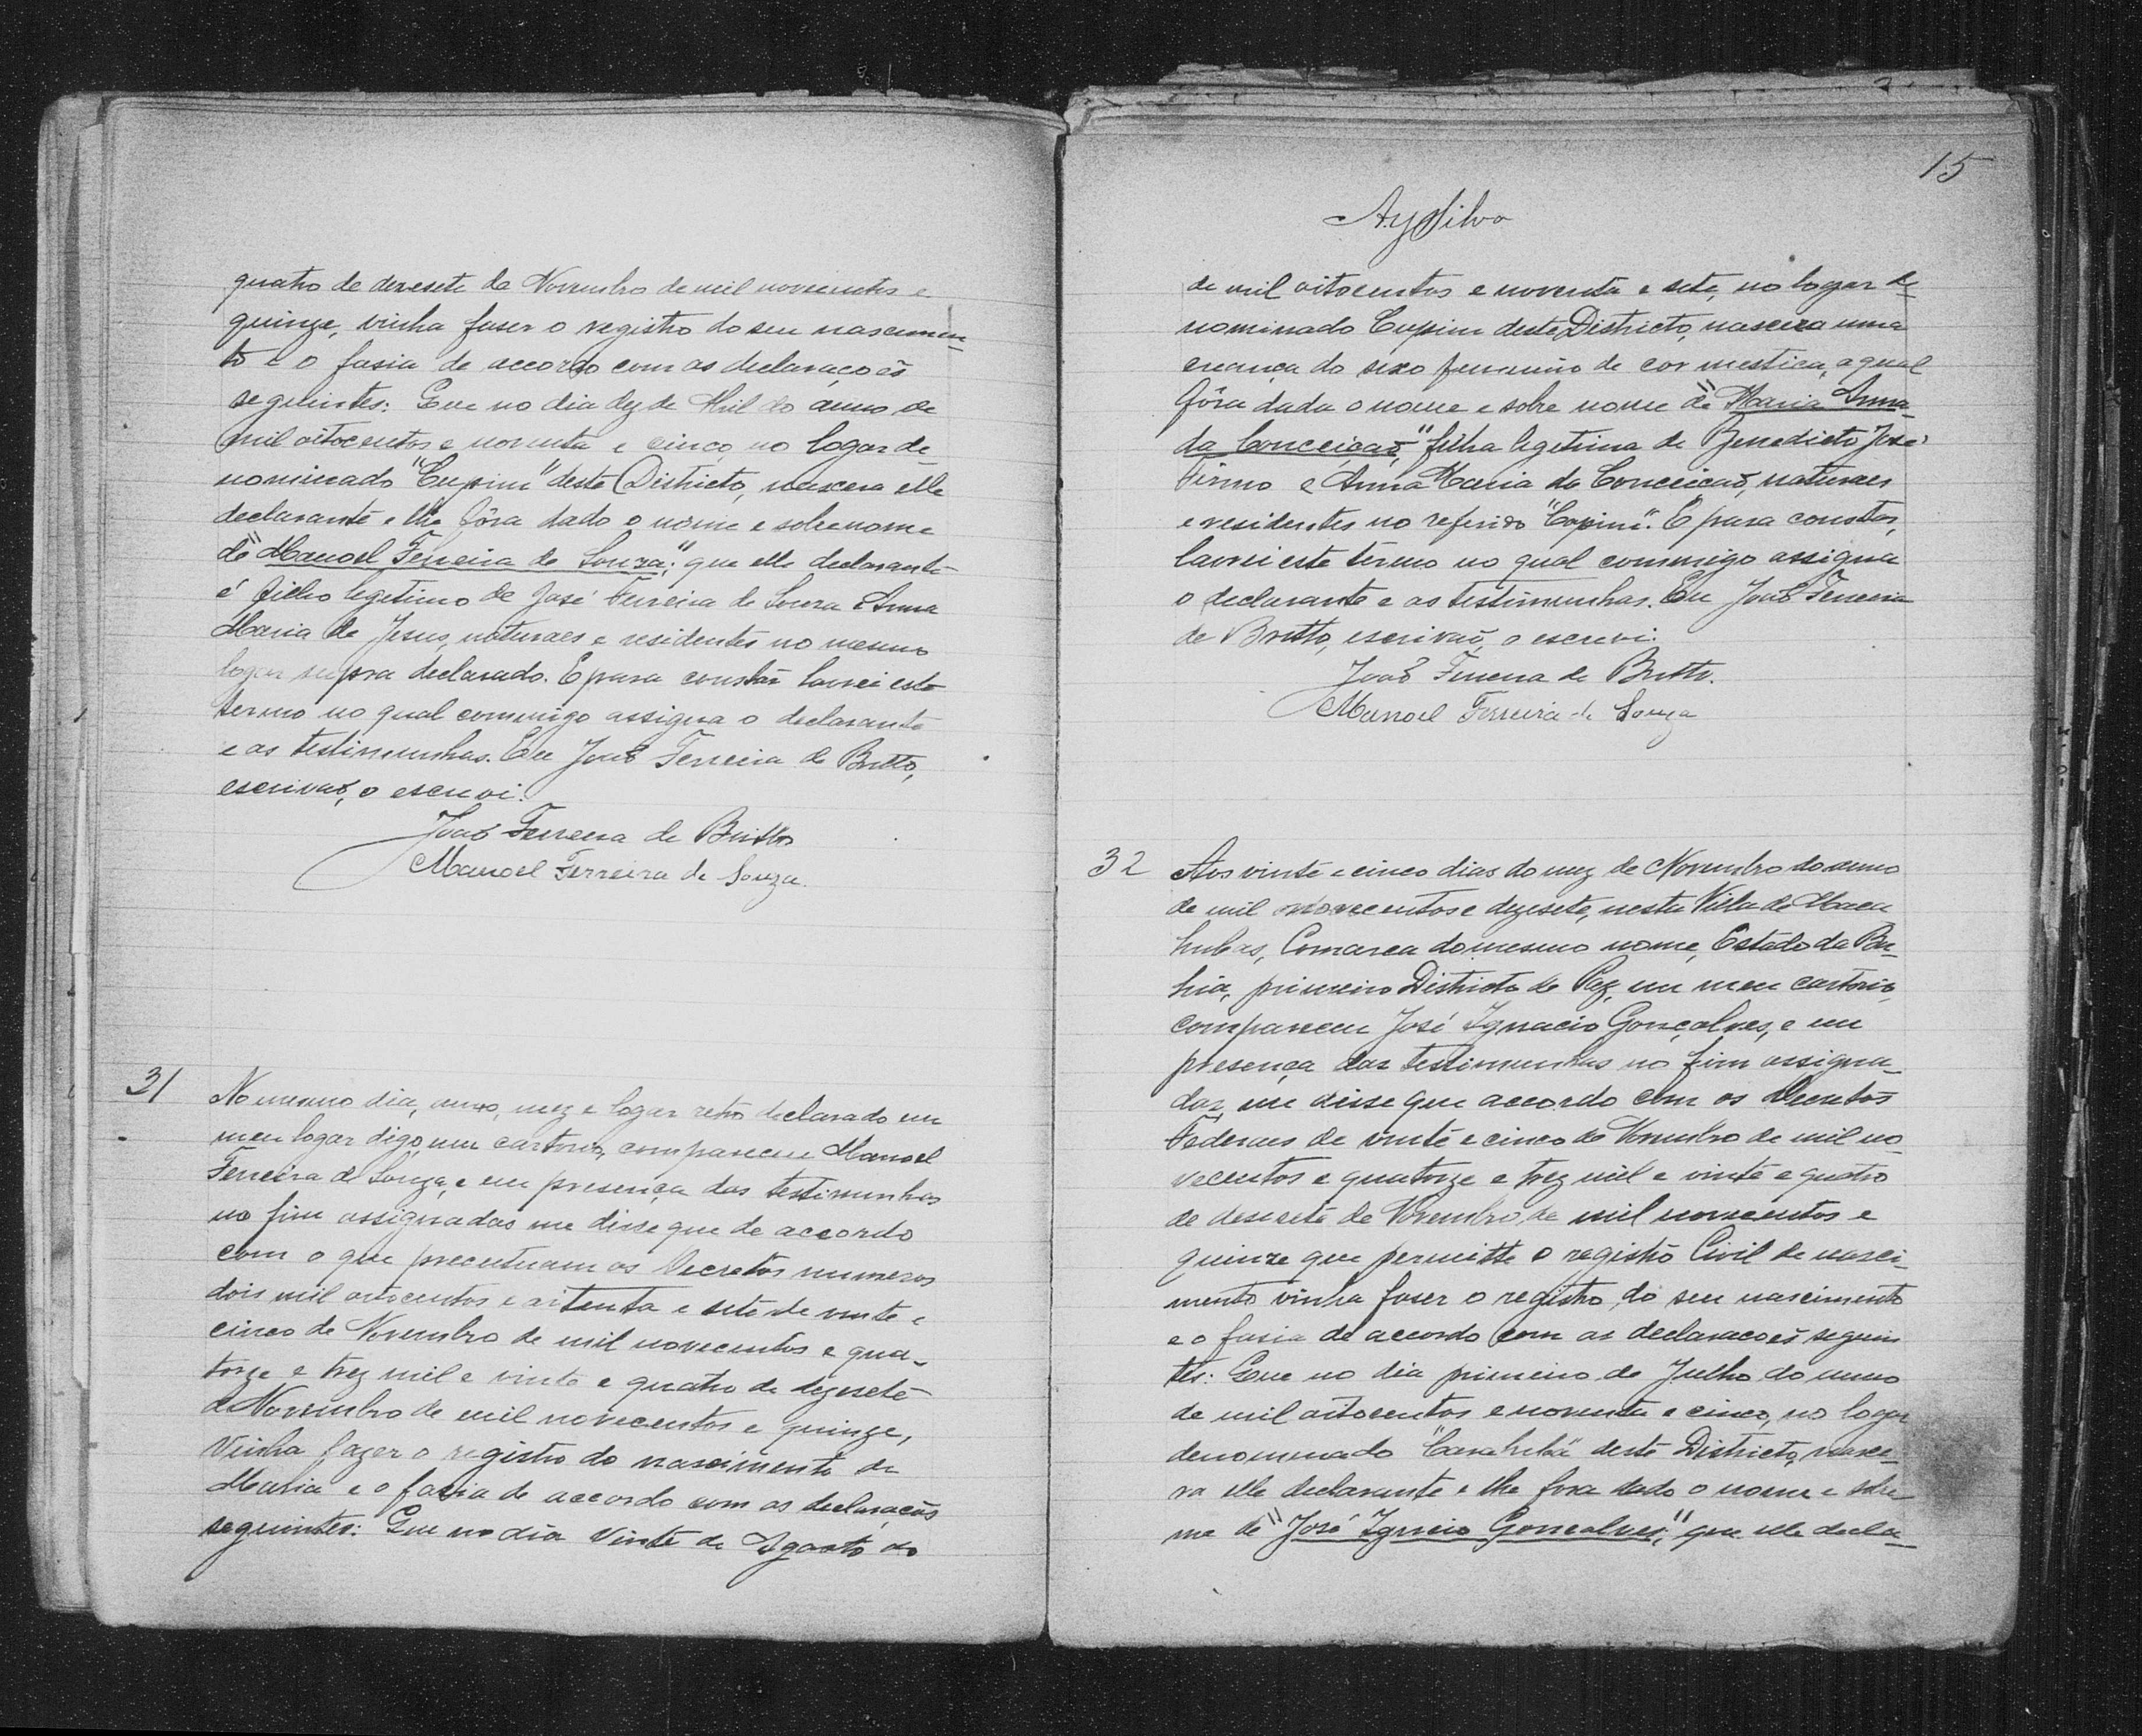 quatro de desesete de Novembro de mil novecentos e
quinze, vinha faser o registro do seu nascimen-
to e o fasia de accordo com as declarações
seguintes: Que no dia dez de Abril do anno de
mil oitocentos e noventa e cinco no logar de-
nominado "Cupim" deste Districto, nascera elle
declarante e lhe fôra dado o nome e sobrenome
de "Manoel Ferreira de Souza;" que elle declarante
é filho legetimo de José Ferreira de Souza e Anna
Maria de Jesus, naturaes e residentes no mesmo
logar supra declarado. E para constar lavrei este
termo no qual commigo assigna o declarante
e as testimunhas. Eu João Ferreira de Britto,
escrivão, o escrevi.
João Ferreira de Britto
Manoel Ferreira de Souza.
31 No mesmo dia, anno, mez e logar retro declarado em
meu logar digo, meu cartorio, compareceu Manoel
Ferreira de Souza, e em presença das testimunhas
no fim assignadas me disse que de accordo
com o que preceituam os Decretos numeros
dois mil oitocentos e oitenta e sete de vinte e
cinco de Novembro de mil novecentos e qua-
torze e trez mil e vinte e quatro de dezesete
de Novembro de mil novecentos e quinze,
vinha fazer o registro do nascimento de
Maria e o fasia de accordo com as declarações
seguintes: Que no dia vinte de Agosto do
15
AySilva
de mil oitocentos e noventa e sete, no logar de-
nominado Cupim deste Districto, nascera uma
creança do sexo femenino de cor mestica, a qual
fôra dada o nome e sobre nome de "Maria Anna
da Conceição," filha legetima de Benedicto José
Firmo e Anna Maria da Conceição, naturaes
e residentes no referido "Cupim". E para constar,
lavrei este termo no qual commigo assigna
o declarante e as testimunhas. Eu João Ferreira
de Britto, escrivão, o escrevi.
João Ferreira de Britto.
Manoel Ferreira de Souza
32 Aos vinte e cinco dias do mez de Novembro do anno
de mil novecentos e dezesete, nesta Villa de Maca
hubas, Comarca do mesmo nome, Estado da Ba-
hia, primeiro Districto de Paz, em meu cartorio,
compareceu José Ignacio Gonçalves, e em
presença das testimunhas no fim assigna-
das, me disse que accordo com os Decretos
Federaes de vinte e cinco de Novembro de mil no-
vecentos e quatorze e trez mil e vinte e quatro
de desesete de Novembro de mil novecentos e
quinze que permitte o registro Civil de nasci-
mento vinha faser o registro do seu nascimento
e o fasia de accordo com as declaracoes seguin
tes: Que no dia primeiro de Julho do anno
de mil oitocentos e noventa e cinco, no logar
denominado deste Districto, nasce-
ra elle declarante e lhe fora dado o nome e sobre-
me de "José Ignacio Goncalves;" que elle decla-